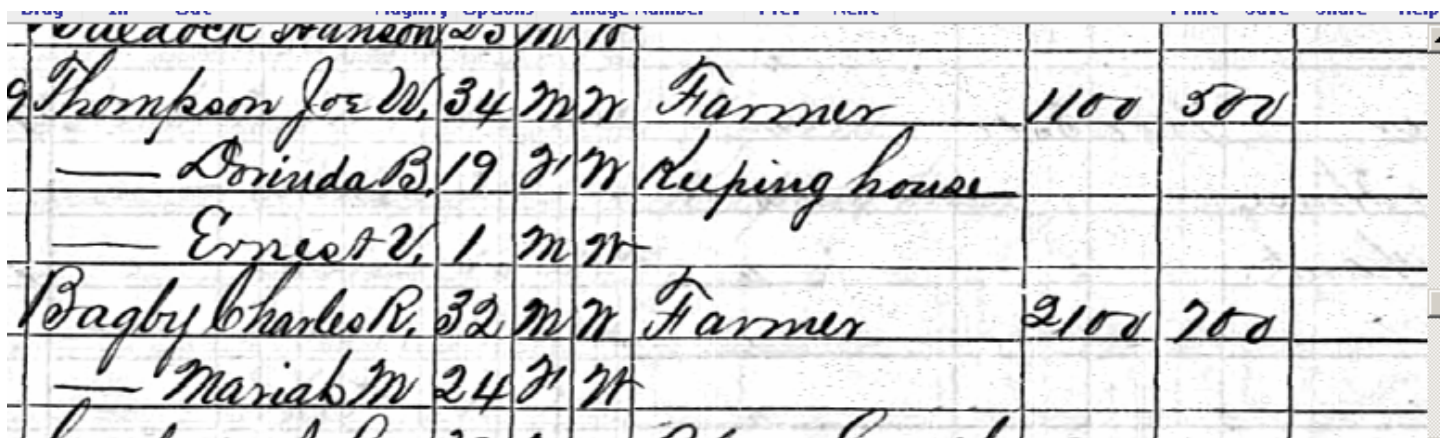 Hanson 23 M W
9 Thompson Joe W. 34 M W Farmer 1100 500
— Dorinda B. 19 F W Keeping house
— Ernest V. 1 M W
Bagby Charles R. 32 M W Farmer 2100 700
— Mariah M 24 F W